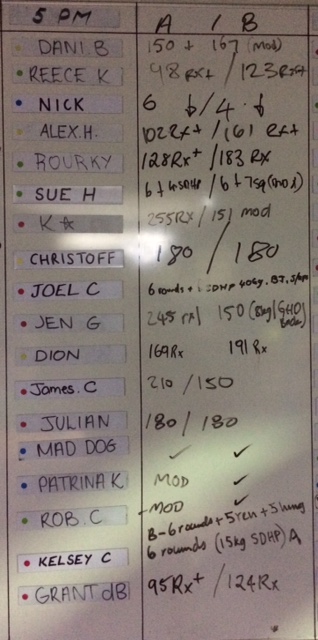 5 PM A / B
DANI.B 150 + 167 (mod)
REECE K 98 RX+ / 123RX+
NICK 6 ↓ / 4 ↓
ALEX.H. 102 RX+ / 161 RX+
ROURKY 128RX+ / 183 RX
SUE H 6 + 4SDHP / 6 + 7sq (mod)
K☆ 255RX / 151 mod
CHRISTOFF 180 / 180
JOEL C 6 rounds + SDHP 40kg,
JEN G 245 rx / 150 (8kg / GHD
DION 169Rx 191 Rx
James.C 210 / 150
JULIAN 180 / 180
MAD DOG ✓ ✓
PATRINA K MOD ✓
ROB.C - MOD ✓
B-6 rounds + 5 ren + 5 lung
KELSEY C 6 rounds (15kg SDHP) A
GRANT dB 95Rx+ / 124Rx